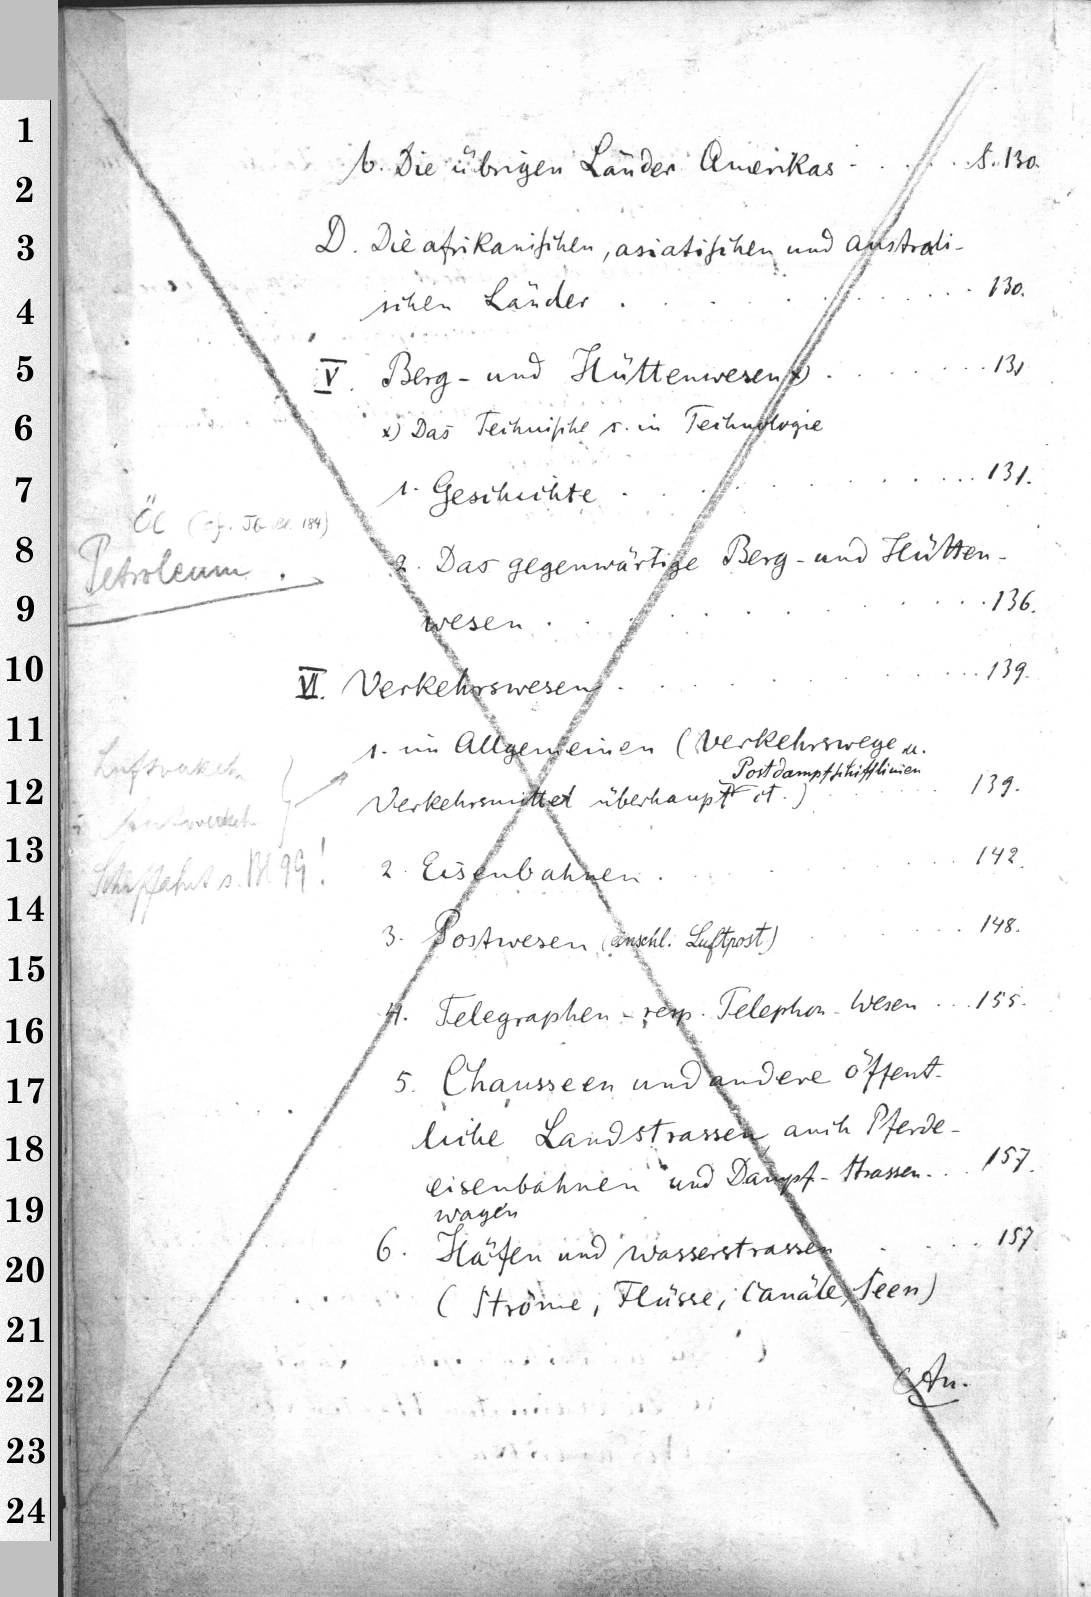 b. Die übrigen Länder Amerikas . . . . . S. 130.
D. Die afrikanischen, asiatischen und australi-
schen Länder . . . . . . . 130.
V. Berg- und Hüttenwesen x) . . . . . 131
x) Das Technische s. in Technologie
1. Geschichte . . . . . . . 131.
Öl (cf. 184)
2. Das gegenwärtige Berg- und Hütten-
Petroleum.
wesen . . . . . . . 136.
VI. Verkehrswesen . . . . . . . 139.
1. im Allgemeinen (Verkehrswege u.
Luftverkehr
Postdampfschifflinien
Verkehrsmittel überhaupt etc.) . . . . 139.
2. Eisenbahnen . . . . . . 142.
Schiffahrt s. Bl 99!
3. Postwesen (einschl. Luftpost) . . . . 148.
4. Telegraphen- resp. Telephon-Wesen . . . 155.
5. Chausseen und andere öffent-
liche Landstrassen, auch Pferde-
eisenbahnen und Dampf-Strassen- . . . 157.
wagen
6. Häfen und Wasserstrassen . . . . 157
(Ströme, Flüsse, Canäle, Seen)
An.
1
2
3
4
5
6
7
8
9
10
11
12
13
14
15
16
17
18
19
20
21
22
23
24